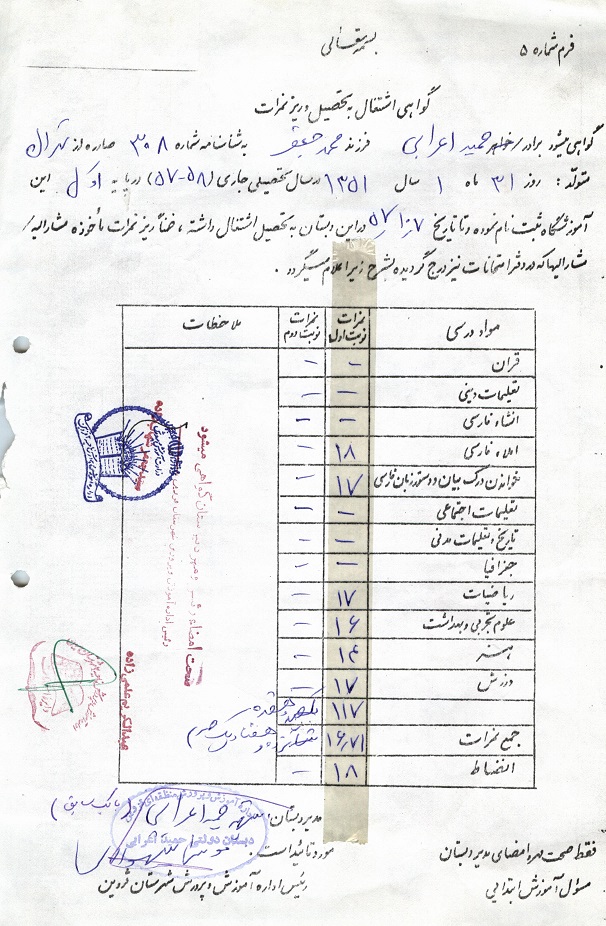 فرم شماره ۵
بسمه تعالی
گواهی اشتغال به تحصیل و ریز نمرات
گواهی میشود برادر/خواهر حمید اعرابی فرزند محمد جعفر به شناسنامه شماره ۳۰۸ صادره از تهران
متولد: روز ۳۱ ماه ۱ سال ۱۳۵۱ در سال تحصیلی جاری (۵۸-۵۷) در پایه اول این
آموزشگاه ثبت نام نموده و تا تاریخ در این دبستان به تحصیل اشتغال داشته، ضمناً ریز نمرات مأخوذه مشارالیه/
مشارالیها که در دفتر امتحانات نیز درج گردیده بشرح زیر اعلام میگردد.
مواد درسی نمرات نوبت اول نمرات نوبت دوم ملاحظات
قران – –
تعلیمات دینی – –
انشاء فارسی – –
املاء فارسی ۱۸ –
خواندن درک بیان و دستور زبان فارسی ۱۷ –
تعلیمات اجتماعی – –
تاریخ و تعلیمات مدنی – –
جغرافیا – –
ریاضیات ۱۷ –
علوم تجربی و بهداشت ۱۶ –
هنر ۱۴ –
ورزش ۱۷ –
۱۱۷ یکصد و هفده
جمع نمرات ۱۶/۷۱
انضباط ۱۸ –
صحت امضاء و مهر دبستان گواهی میشود
عبدالکریم علمی زاده
مدیر دبستان:
دبستان دولتی حمید اعرابی
فقط صحت مهر و امضای مدیر دبستان مورد تائید است.
مسئول آموزش ابتدایی
رئیس اداره آموزش و پرورش شهرستان قزوین